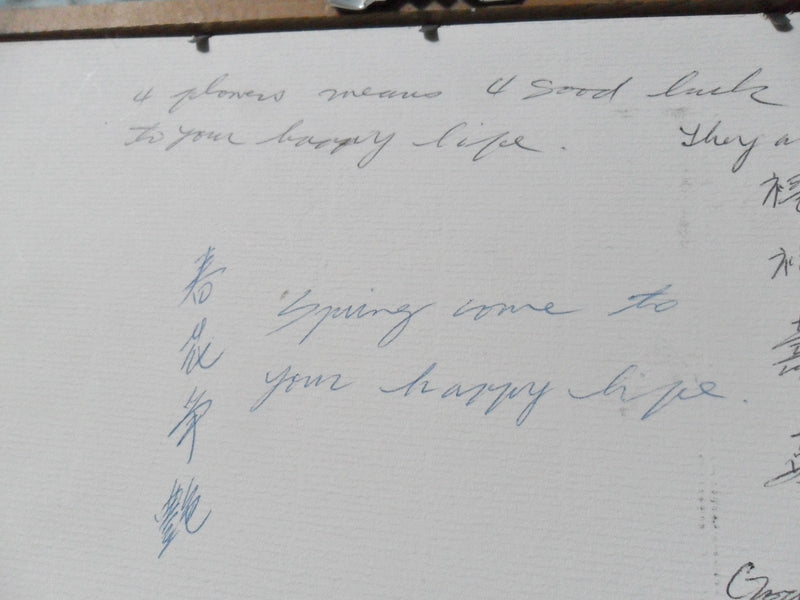 4 flowers means 4 good luck
to your happy life. They a
春花争艳
Spring come to
your happy life.